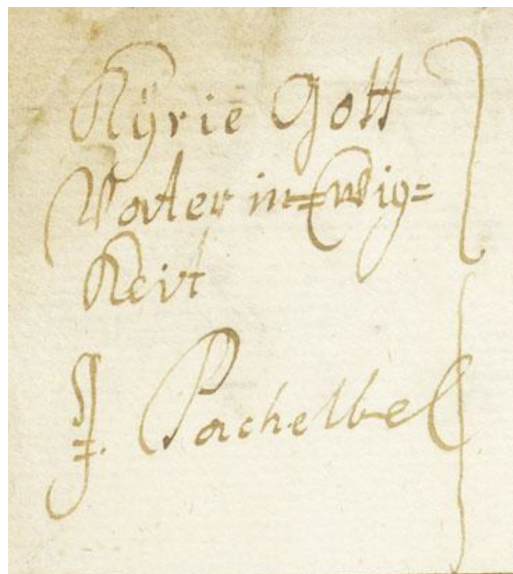 Kÿrie Gott
Vater in Ewig=
Keit
J. Pachelbel